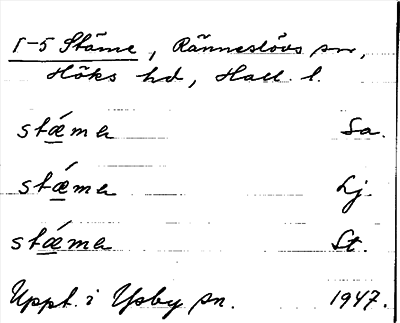 1-5 Stäme, Ränneslövs sn,
Höks hd, Hall. l.
stǽma Sa.
stǽma Lj.
stǽma St.
Uppt. i Ysby sn. 1947.